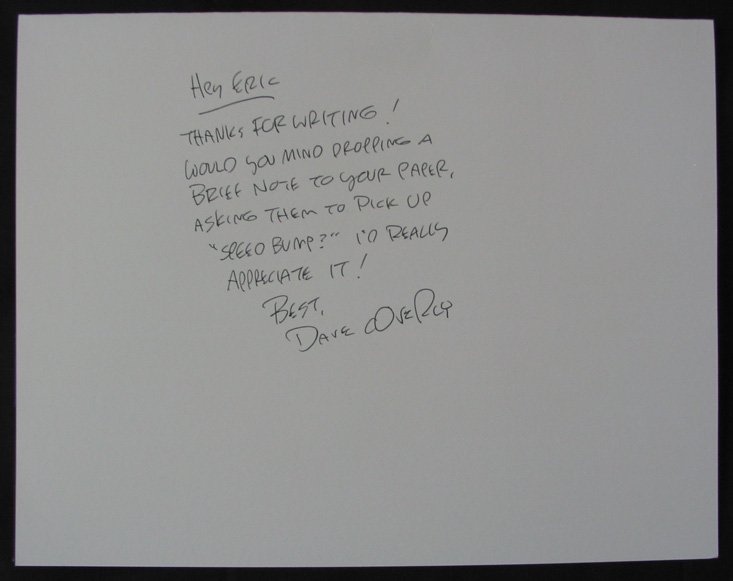 Hey ERIC
THANKS FOR WRITING!
WOULD YOU MIND DROPPING A
BRIEF NOTE TO YOUR PAPER,
ASKING THEM TO PICK UP
"SPEED BUMP?" I'D REALLY
APPRECIATE IT!
BEST,
DAVE COVERLY